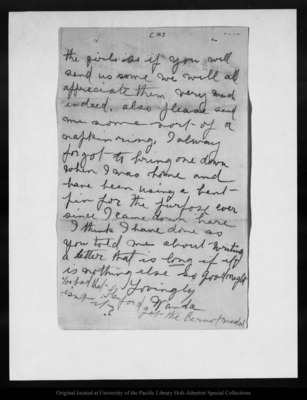 the girls so if you will
send us some we will all
appreciate them very much
indeed, also please send
me some sort of a
napkin ring, I always
forgot to bring one down
when I was home and
have been using a bent
pin for the purpose ever
since I came down here
I think I have done as
you told me about writing
a letter that is long if it
is nothing else so goodnight
Lovingly
Wanda
Too bad that Stanford
got the Barnot medal
isn't it?
Original located at University of the Pacific Library Holt-Atherton Special Collections